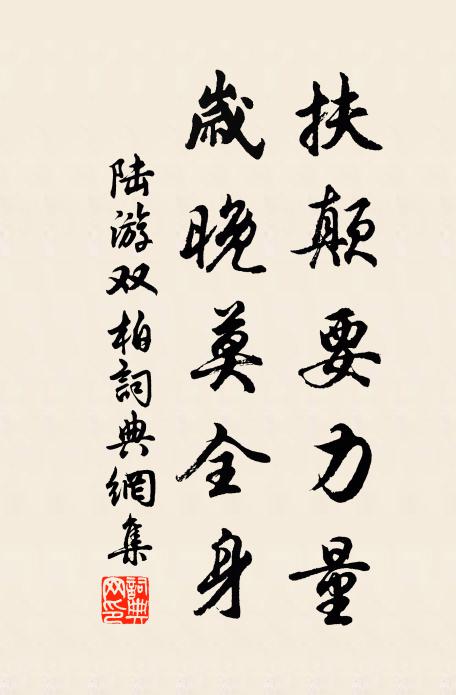 扶颠要力量
歲晚莫全身
陆游双柏詞典網集
詞典网印